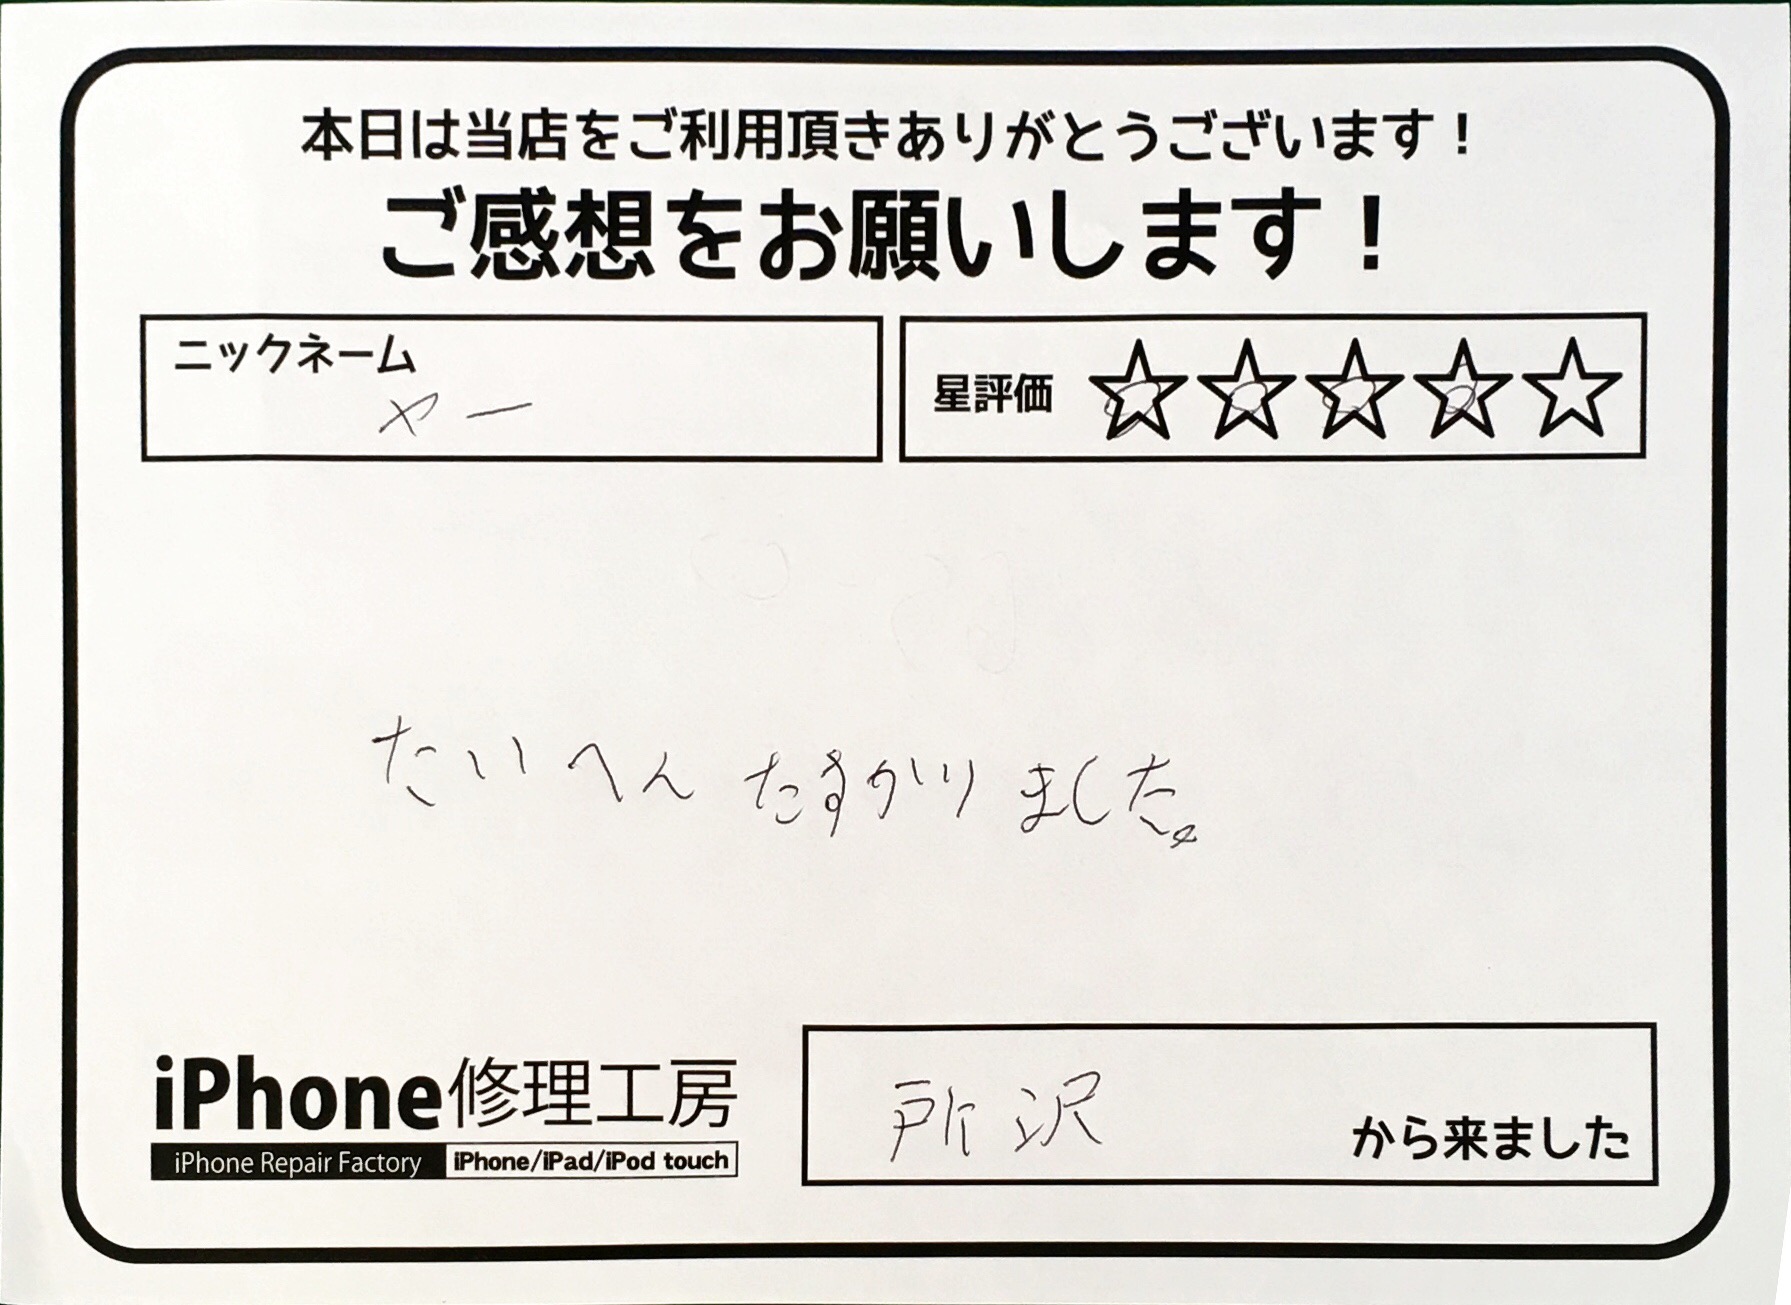 本日は当店をご利用頂きありがとうございます！
ご感想をお願いします！
ニックネーム
やー
星評価 ☆☆☆☆☆
たいへん たすかりました。
iPhone修理工房
iPhone Repair Factory iPhone/iPad/iPod touch
所沢 から来ました